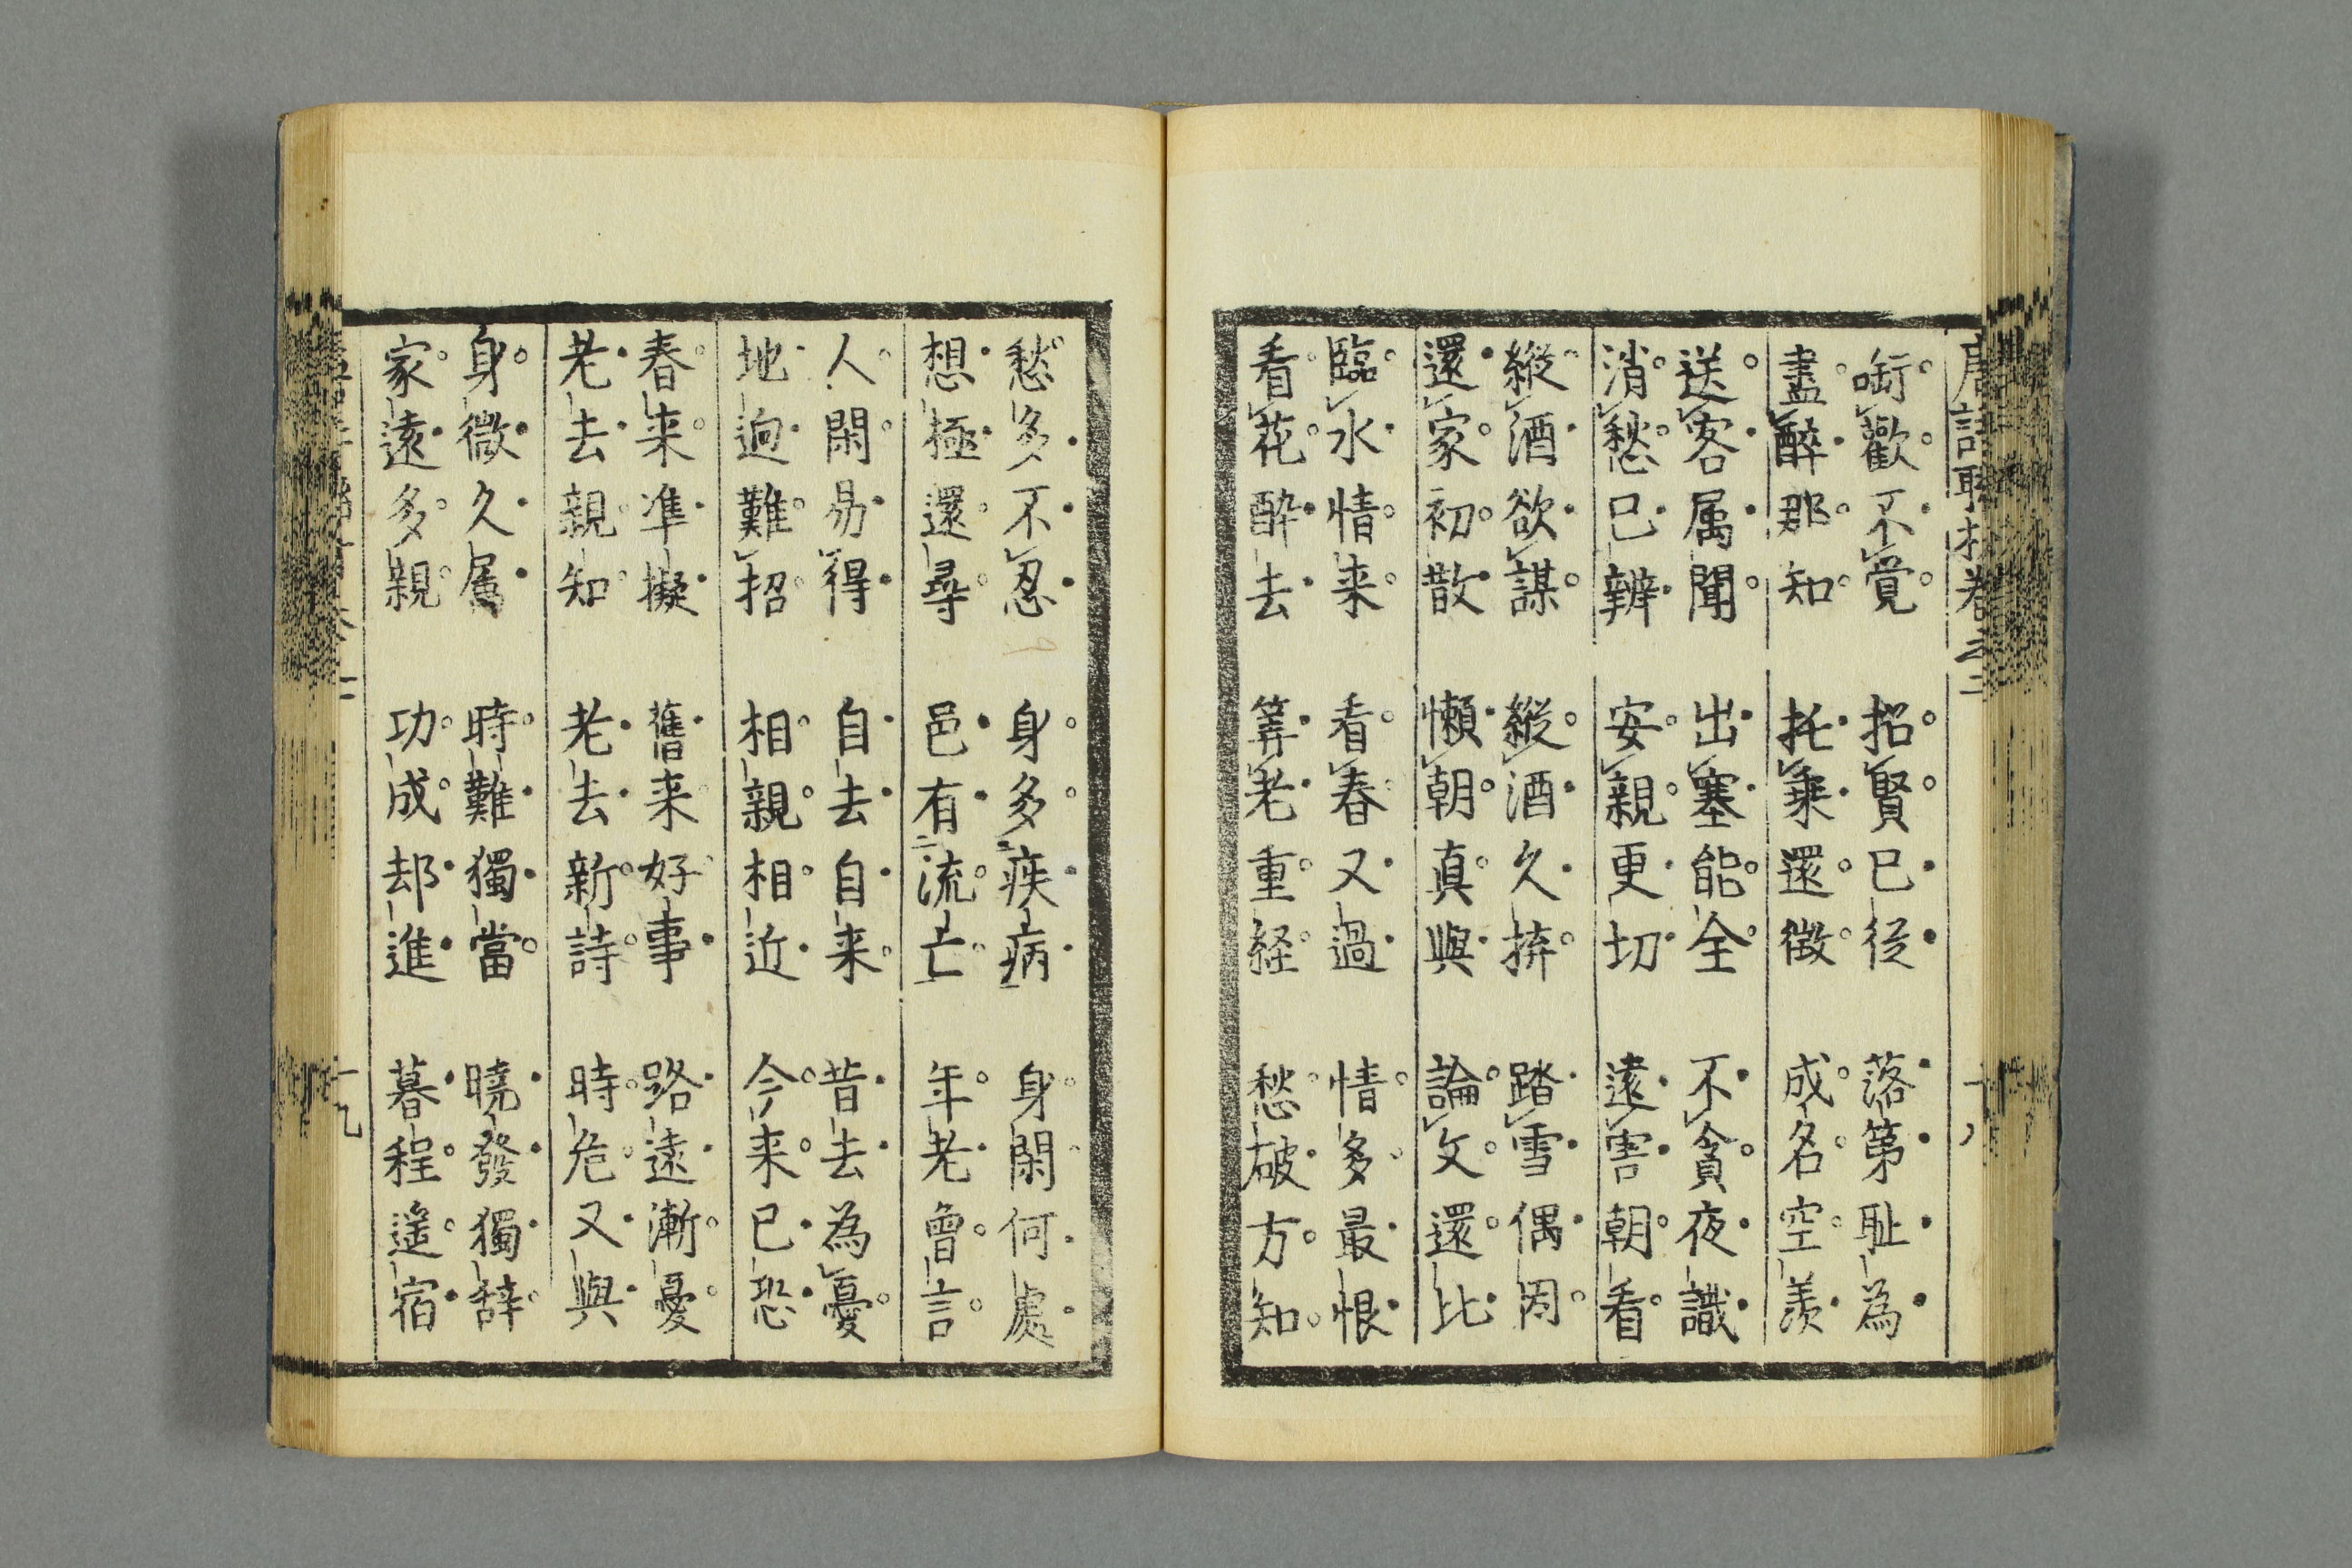 啣歡不覚 招賢已従 落第耻為
盡醉那知 托乗還徴 成名空羨
送客属聞 出塞能全 不貪夜識
消愁已辨 安親更切 遠害朝看
縱酒欲謀 縱酒久拚 踏雪偶因
還家初散 懶朝真與 論文還比
臨水情来 看春又過 情多最恨
看花酔去 筭老重経 愁破方知
愁多不忍 身多疾病 身閑何處
想極還尋 邑有流亡 年老曾言
人閑易得 自去自来 昔去為憂
地迥難招 相親相近 今来已恐
春来准擬 舊来好事 路遠漸憂
老去親知 老去新詩 時危又與
身微久属 時難獨當 曉發獨辞
家遠多親 功成却進 暮程遙宿
十九